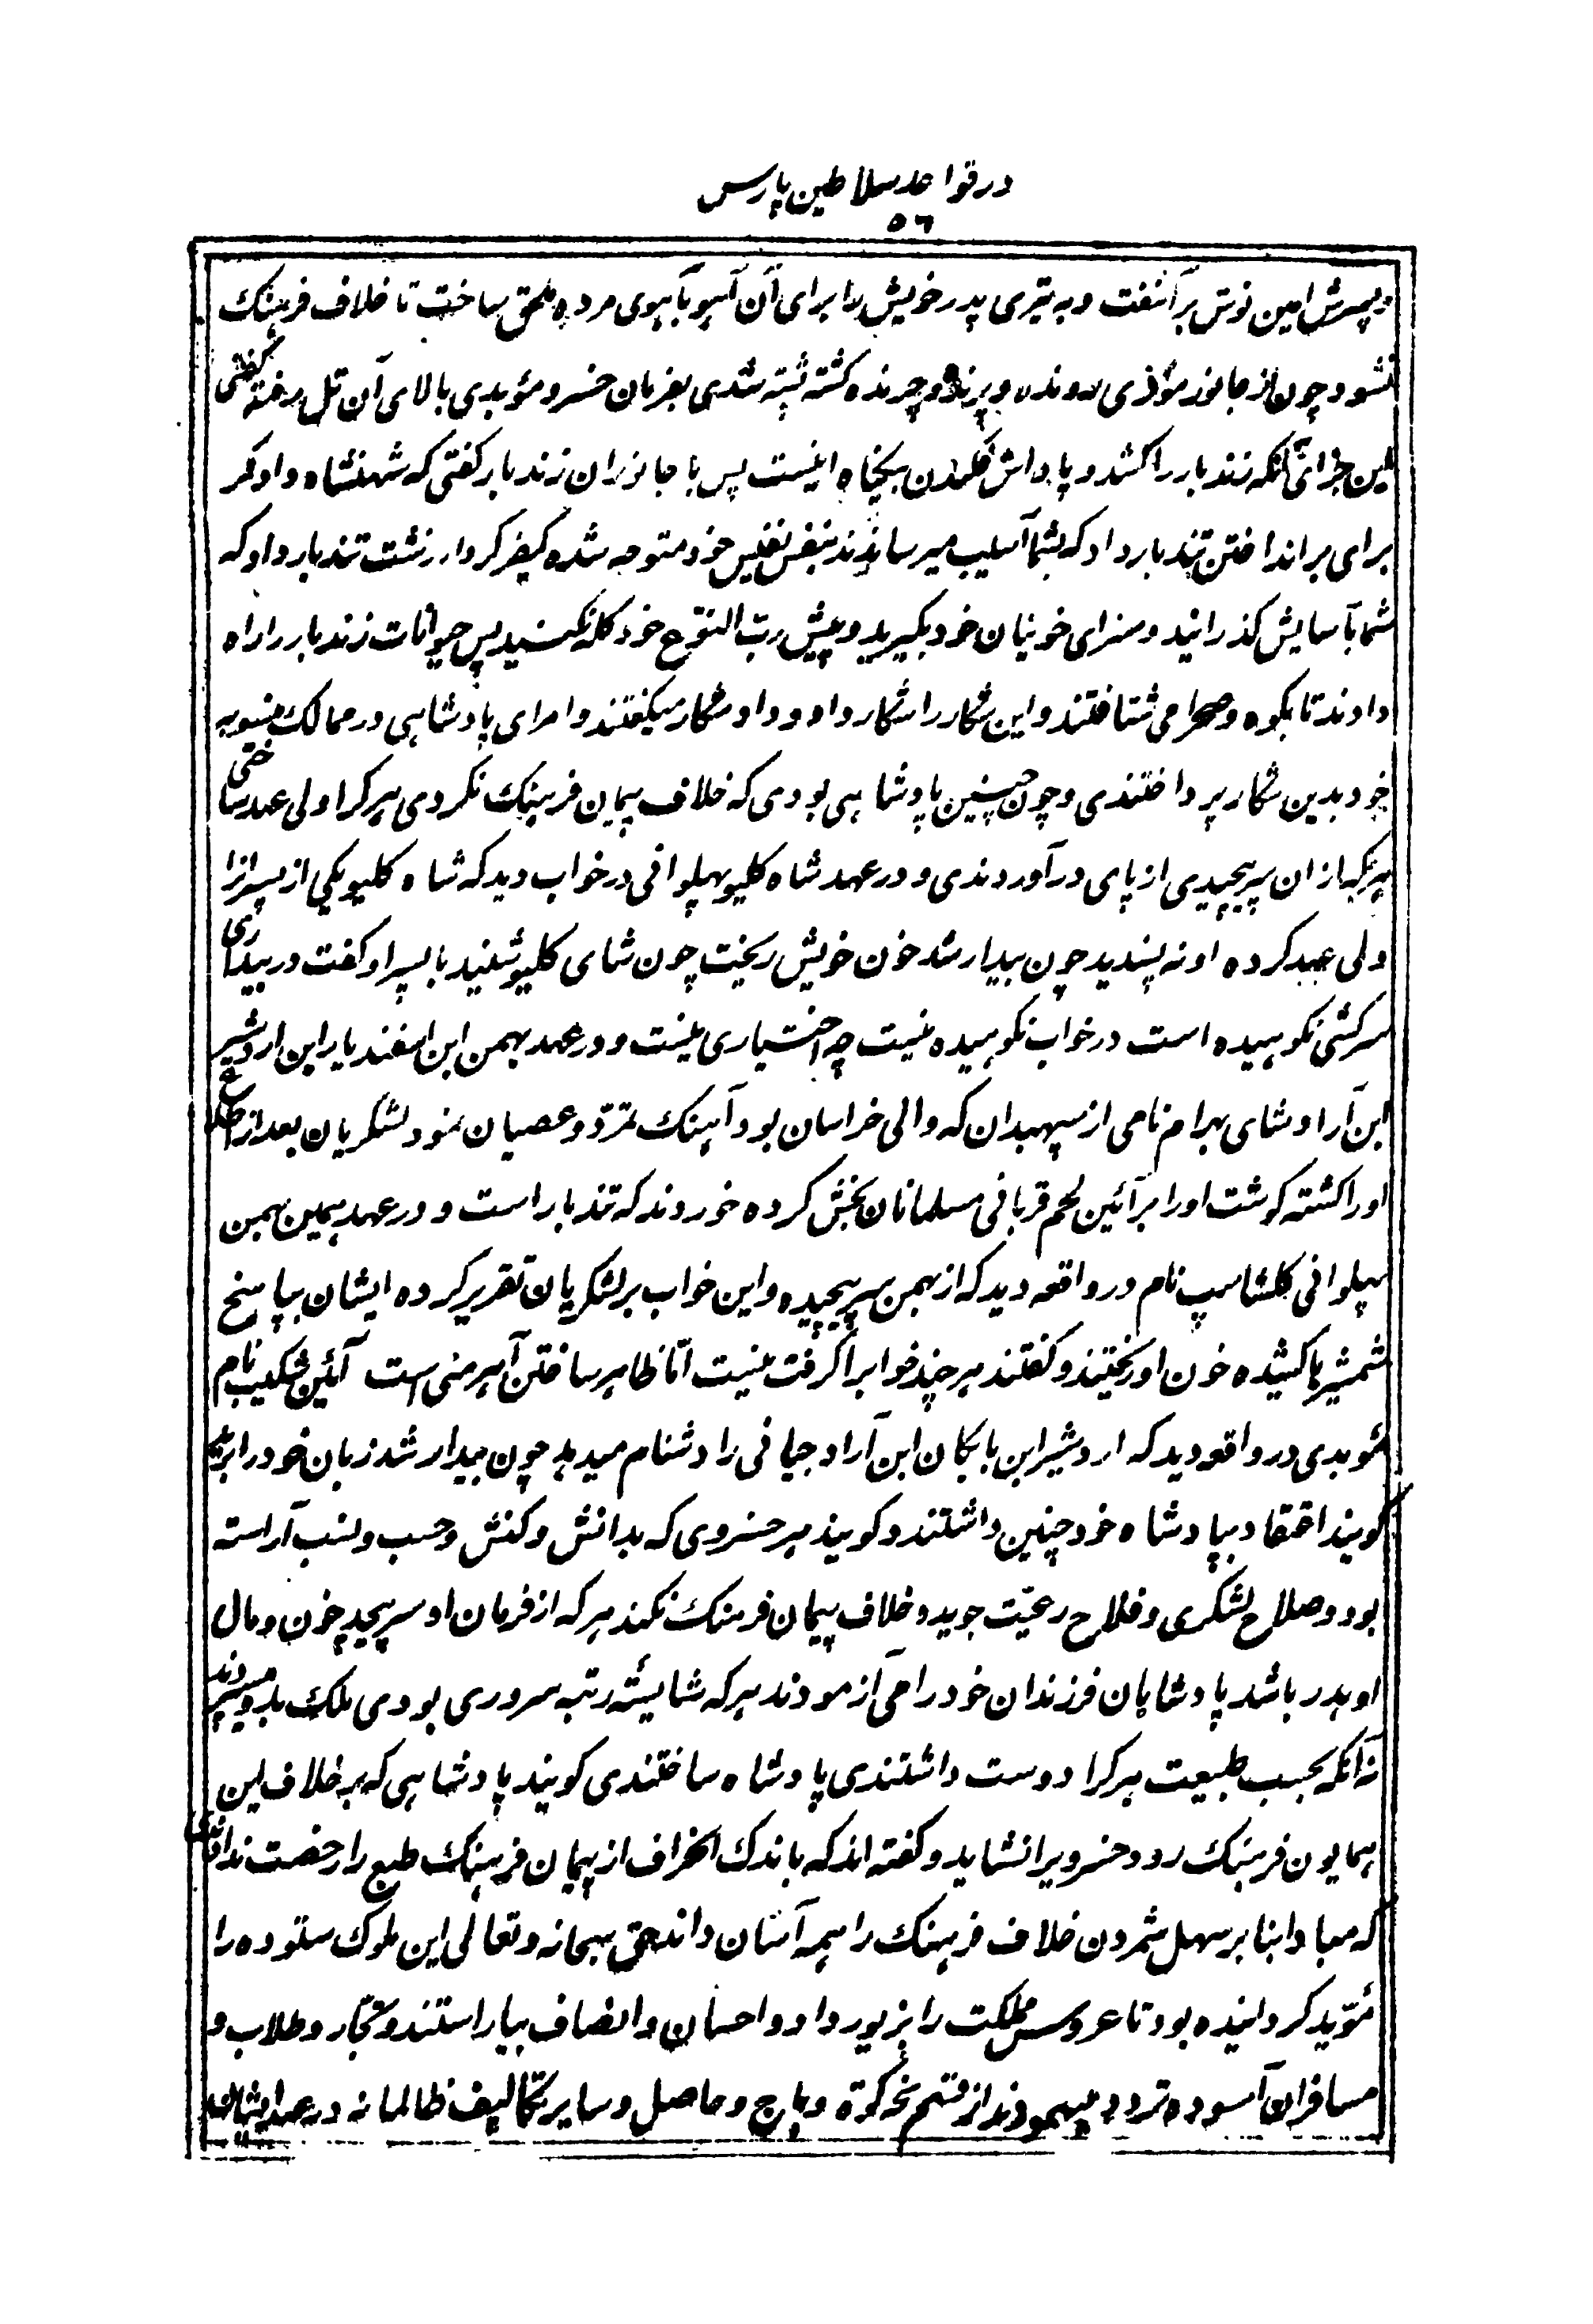 در قواعد سلاطین پارس
۵۶
و پسرش امین نوش بر آشفت و به تیری پدر خویش را برای آن آهو بآهوی مرده ملحق ساخت تا خلاف فرهنك
نشود چون از جانور موذی رونده و پرنده و چرنده کشته پشته شدی بفرمان خسرو مؤبدی بالای آن تل رفته گفتی
این جزای آنکه زندبار را کشد و پاداش بیگناه اینست پس با جانوران زندبار کفتی که شهنشاه دادکر
برای بر انداختن تندبار داد که بشما آسیب میرسانند بنفس نفیس خود متوجه شده کیفر کردار زشت تندبار داد که
شما بآسایش کذرانید و سزای خونیان خود بگیرید و پیش رب النوع خود کله نکنید پس حیوانات زندبار را راه
دادند تا بکوه و صحرا می شتافتند و این شکار را شکار داد و داد شکار میکفتند و امرای پادشاهی در ممالك منسوبه
خود بدین شکار پرداختندی و چون چنین پادشاهی بودی که خلاف پیمان فرهنك نکردی هر کرا ولی عهد ساختی
هر که از ان سر پیچیدی از پای درآوردندی و در عهد شاه کلیو پهلوانی در خواب دید که شاه کلیو یکی از پسرانرا
ولی عهد کرده او نه پسندید چون بیدار شد خون خویش ریخت چون شای کلیو شنید با پسر او کفت در بیداری
سرکشی نکوهیده است در خواب نکوهیده نیست چه اختیاری نیست و در عهد بهمن ابن اسفندیار ابن اردشیر
ابن آراد شای بهرام نامی از سپهبدان که والی خراسان بود آهنك تمرّد و عصیان نمود لشکریان بعد از اطلاع
او را کشته کوشت او را بر آئین لحم قربانی مسلمانان بخش کرده خوردند که تندبار است و در عهد همین بهمن
پهلوانی کلشاسپ نام در واقعه دید که از بهمن سر پیچیده و این خواب بر لشکریان تقریر کرده ایشان بپاسخ
شمشیرها کشیده خون او ریختند و کفتند هر چند خوابرا کرفت نیست امّا ظاهر ساختن آهرمنی است آئین شکیب نام
مؤبدی در واقعه دید که اردشیر ابن بابکان ابن آراد جیانی را دشنام میدهد چون بیدار شد زبان خود را برید
کویند اعتقاد بپادشاه خود چنین داشتند و کویند هر خسروی که بدانش و کنش و حسب و نسب آراسته
بود و صلاح لشکری و فلاح رعیّت جوید و خلاف پیمان فرهنك نکند هر که از فرمان او سر پیچد خون و مال
او هدر باشد پادشاهان فرزندان خود را می آزمودند هر که شایستهٔ رتبه سروری بودی ملك بدو میسپردند
نه آنکه بحسب طبیعت هر کرا دوست داشتندی پادشاه ساختندی کویند پادشاهی که بر خلاف این
همایون فرهنك رود خسرویرا نشاید و کفته اند که باندك انحراف از پیمان فرهنك طبع را رخصت ندادندی
که مبادا بنا بر سهل شمردن خلاف فرهنك را همه آسان دانند حق سبحانه و تعالی این ملوك ستوده را
مؤیّد کردانیده بود تا عروس مملکت را بزیور داد و احسان و انصاف بیاراستند و تجّار و طلاب و
مسافران آسوده تردد مینمودند از قسم و باج و حاصل و سایر تکالیف ظالمانه در عهد ایشان